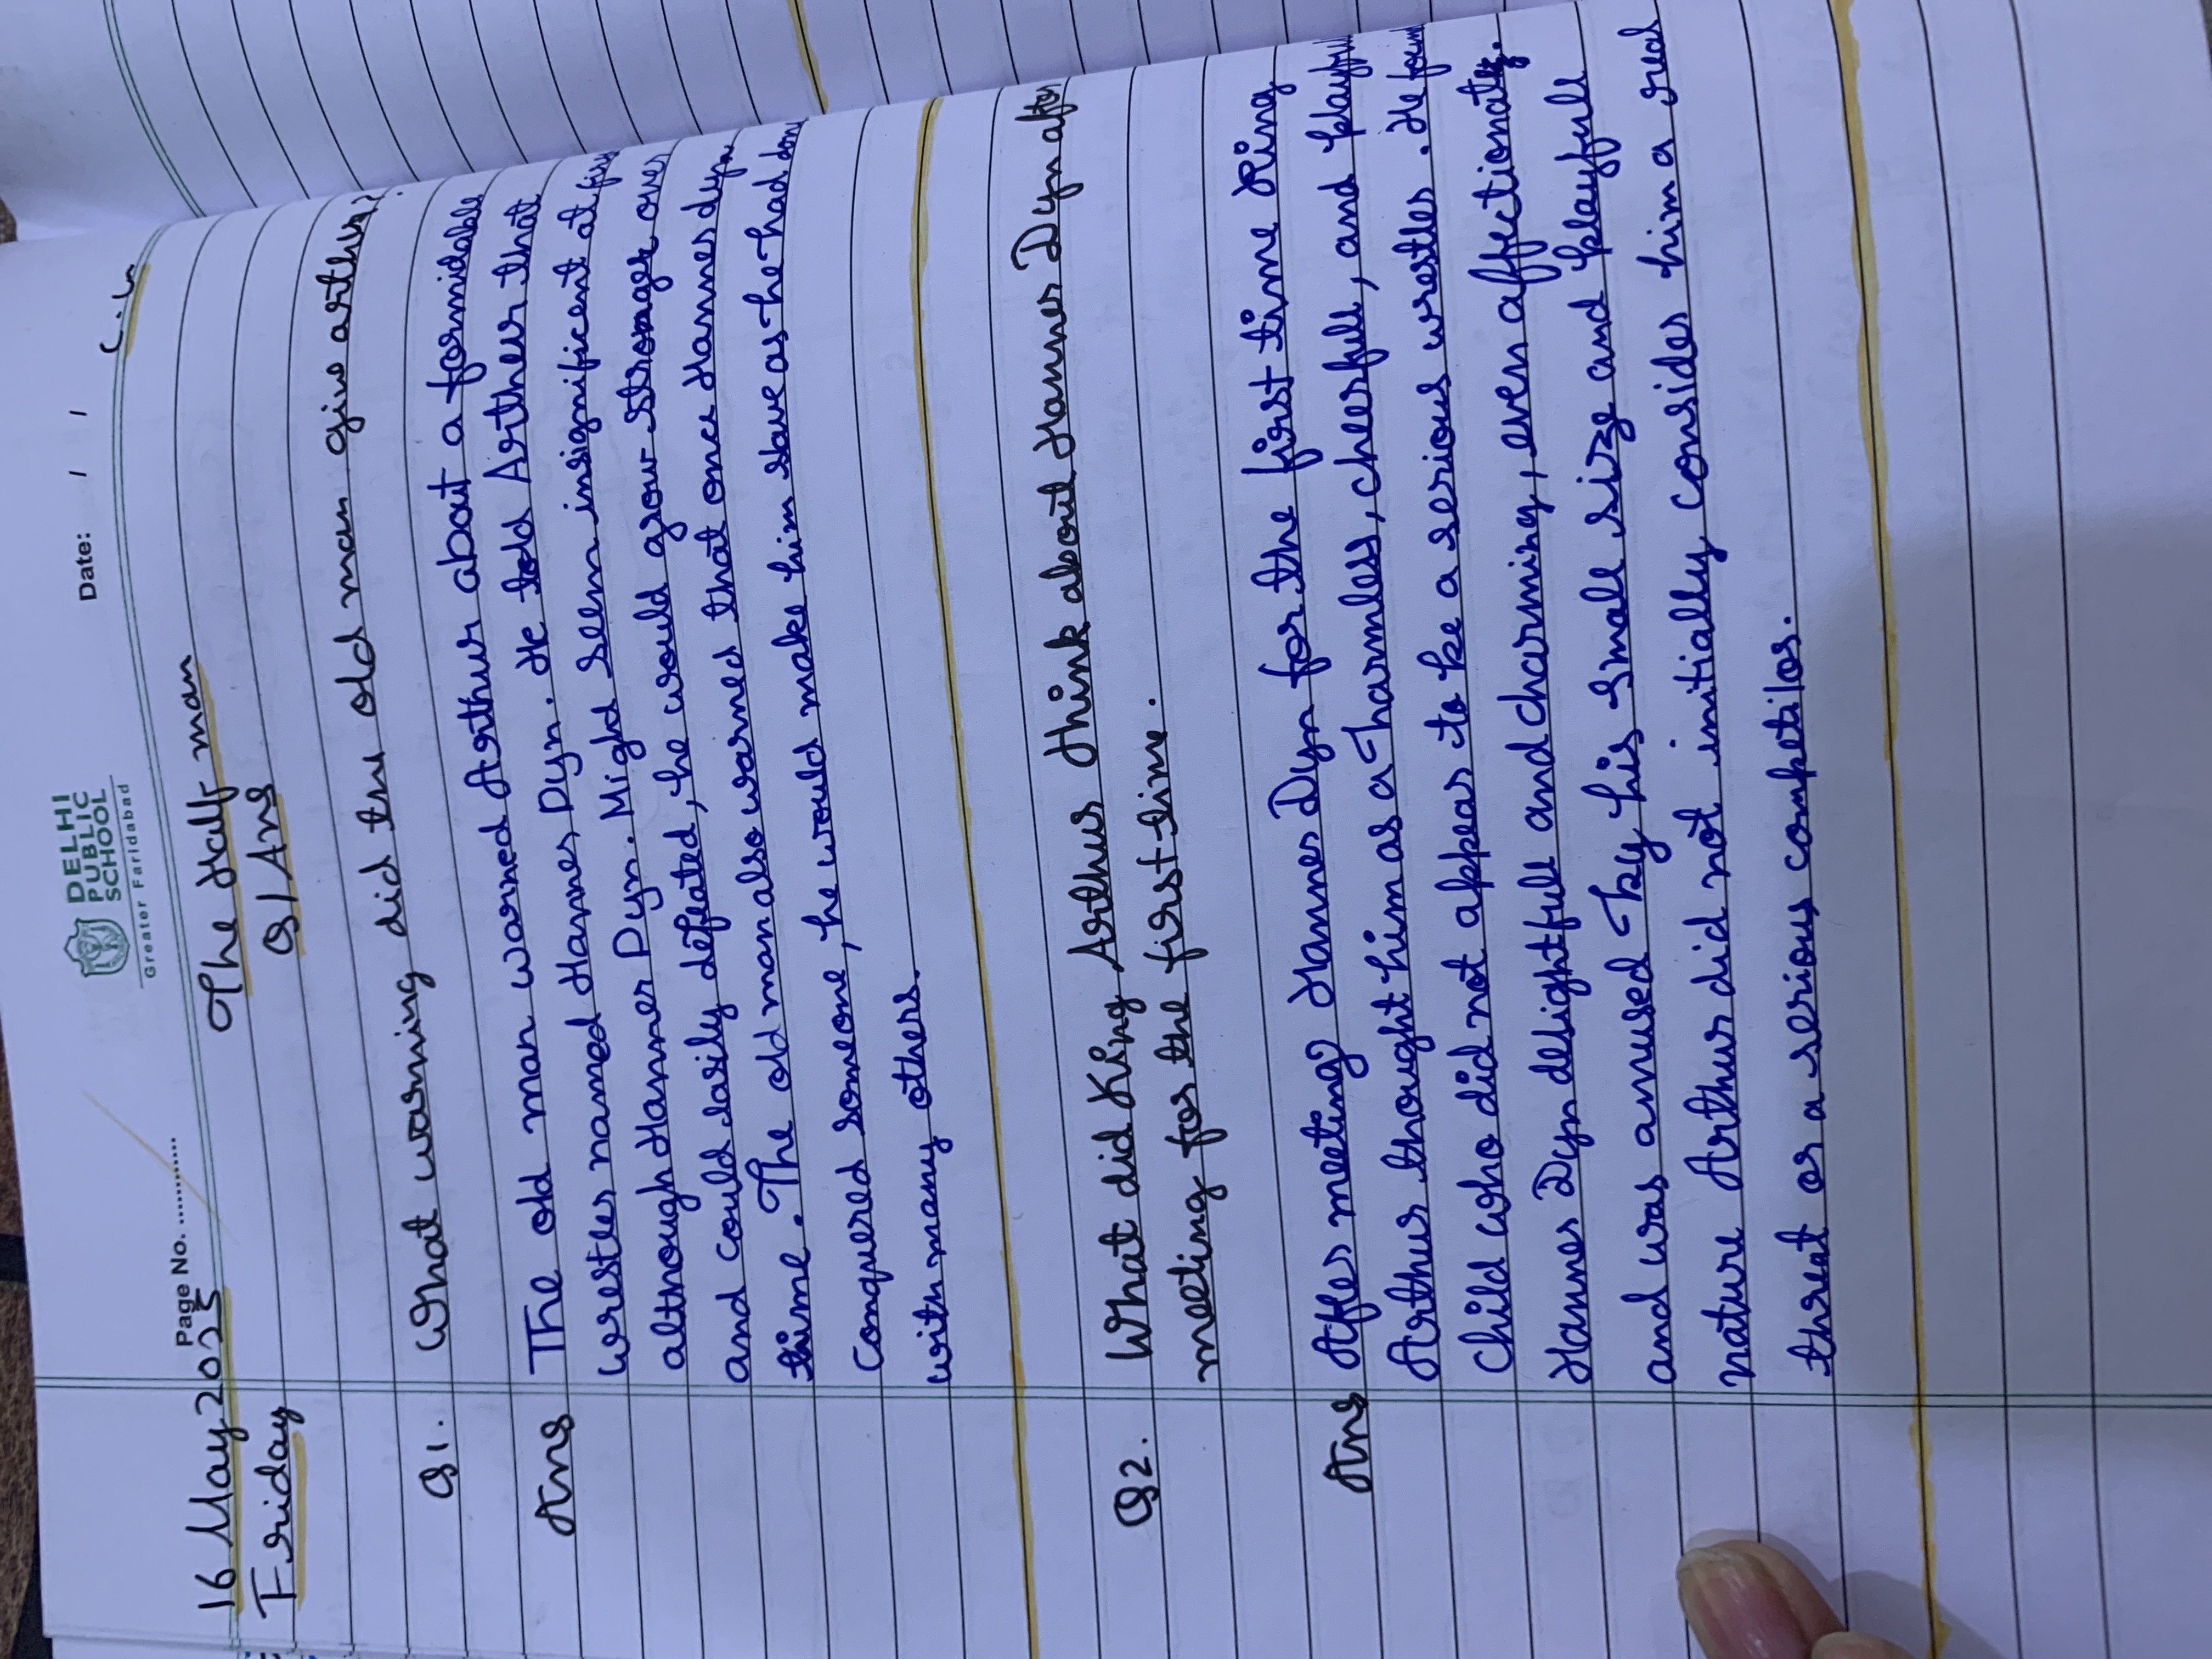 DELHI
PUBLIC
SCHOOL
Greater Faridabad
Page No. ............
Date: / /
C.W
16 May 2025
Friday
The Half man
Q/Ans
Q1. What warning did the old man give arthur?
Ans The old man warned Arthur about a formidable
wrestler named Hanner Dyn. He told Arther that
although Hanner Dyn. Might seem insignificent at first
and could easily defeated, he would grow stronger over
time. The old man also warned that once Hanner dyn
Conquered someone, he would make him slave as he had done
with many others.
Q2. What did King Arthur think about Hanner Dyn after
meeting for the first time.
Ans After meeting Hanner Dyn for the first time King
Arthur thought him as a harmless, cheerfull, and playfull
child who did not appear to be a serious wrestler. He found
Hanner Dyn delightfull and charming, even affectionate.
and was amused by his small size and playfull
nature Arthur did not initially consider him a real
threat or a serious competitor.